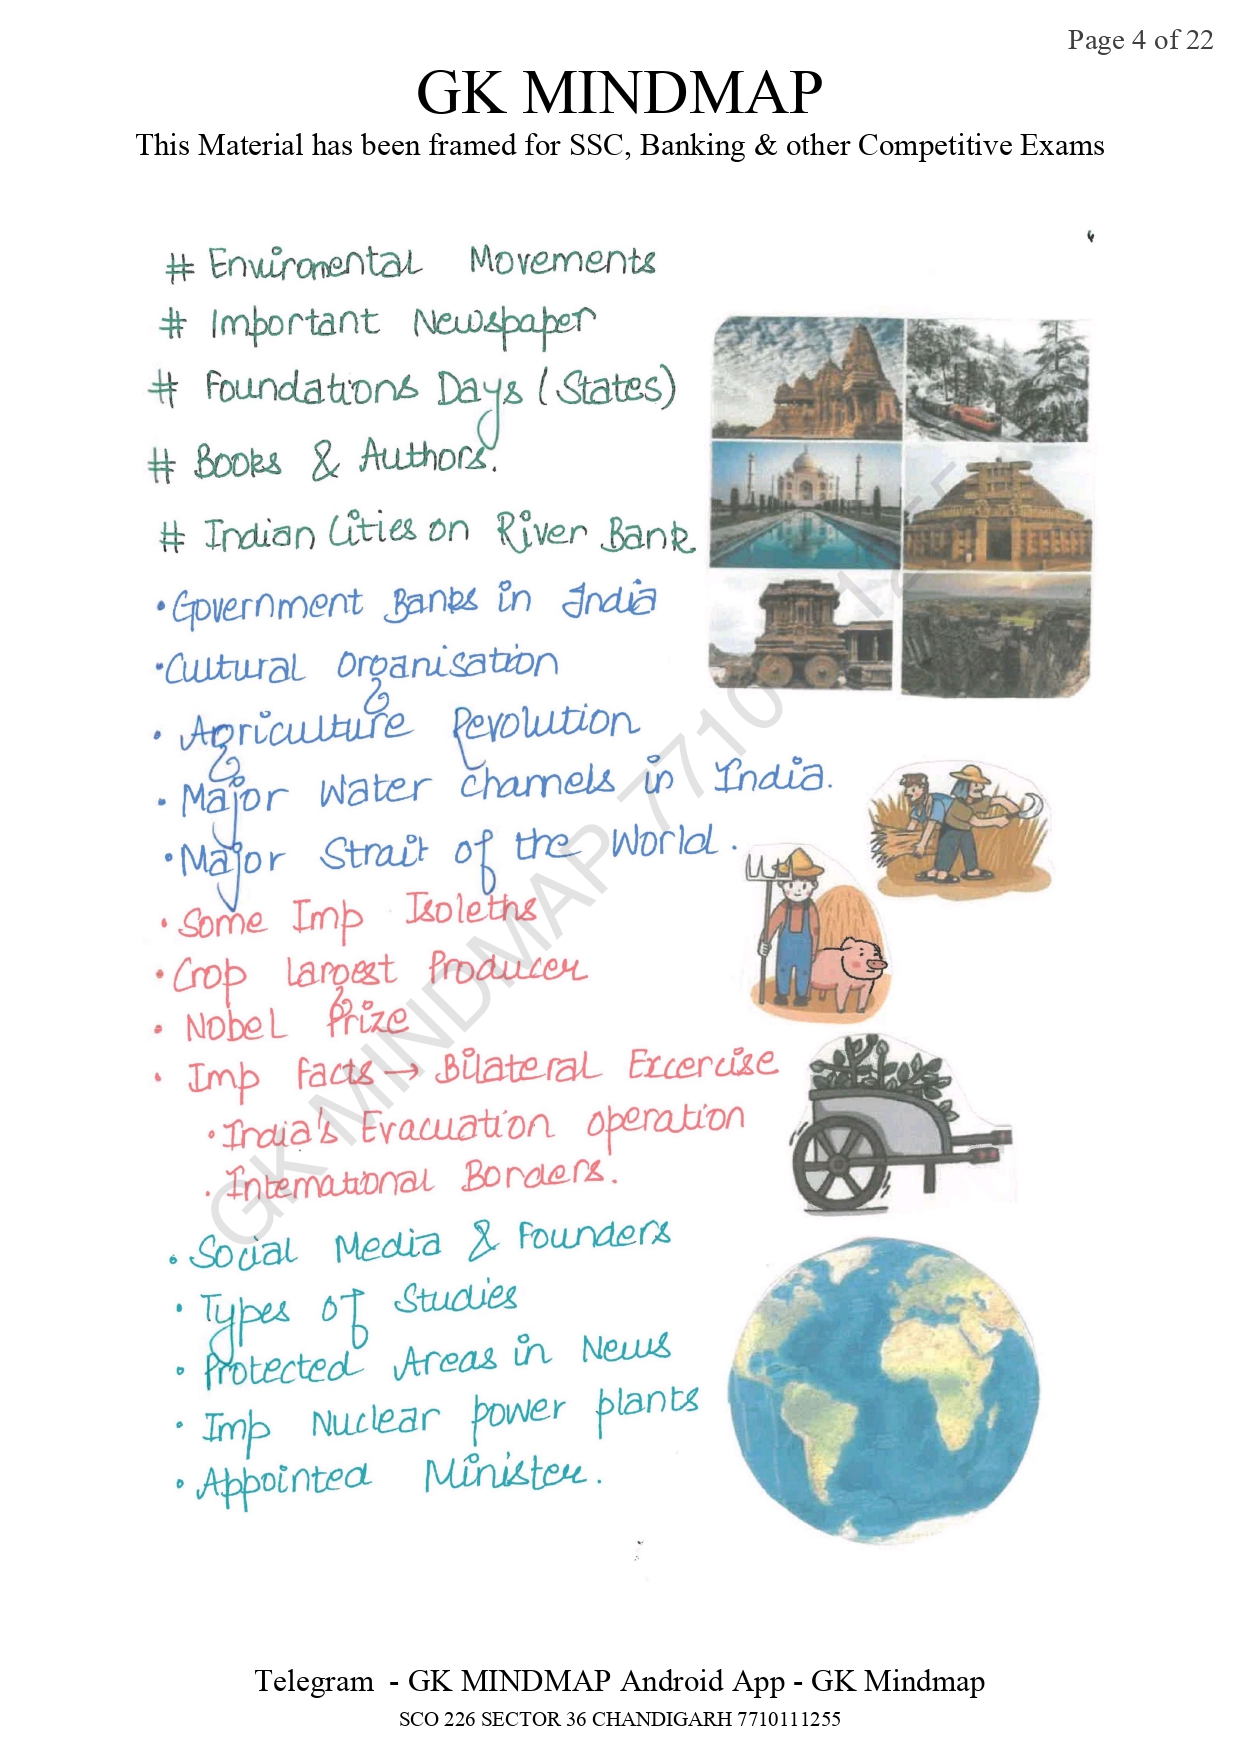 Page 4 of 22
GK MINDMAP
This Material has been framed for SSC, Banking & other Competitive Exams
# Enviromental Movements
# Important Newspaper
# Foundations Days (States)
# Books & Authors.
# Indian Cities on River Bank
• Government Banks in India
• Cultural Organisation
• Agriculture Revolution
• Major Water Channels in India.
• Major Strait of the World.
• Some Imp Isoleths
• Crop Largest Producer
• Nobel Prize
• Imp Facts → Bilateral Excercise
• India's Evacuation Operation
• International Borders.
• Social Media & Founders
• Types of Studies
• Protected Areas in News
• Imp Nuclear power plants
• Appointed Minister.
GK MINDMAP 7710111255
Telegram - GK MINDMAP Android App - GK Mindmap
SCO 226 SECTOR 36 CHANDIGARH 7710111255